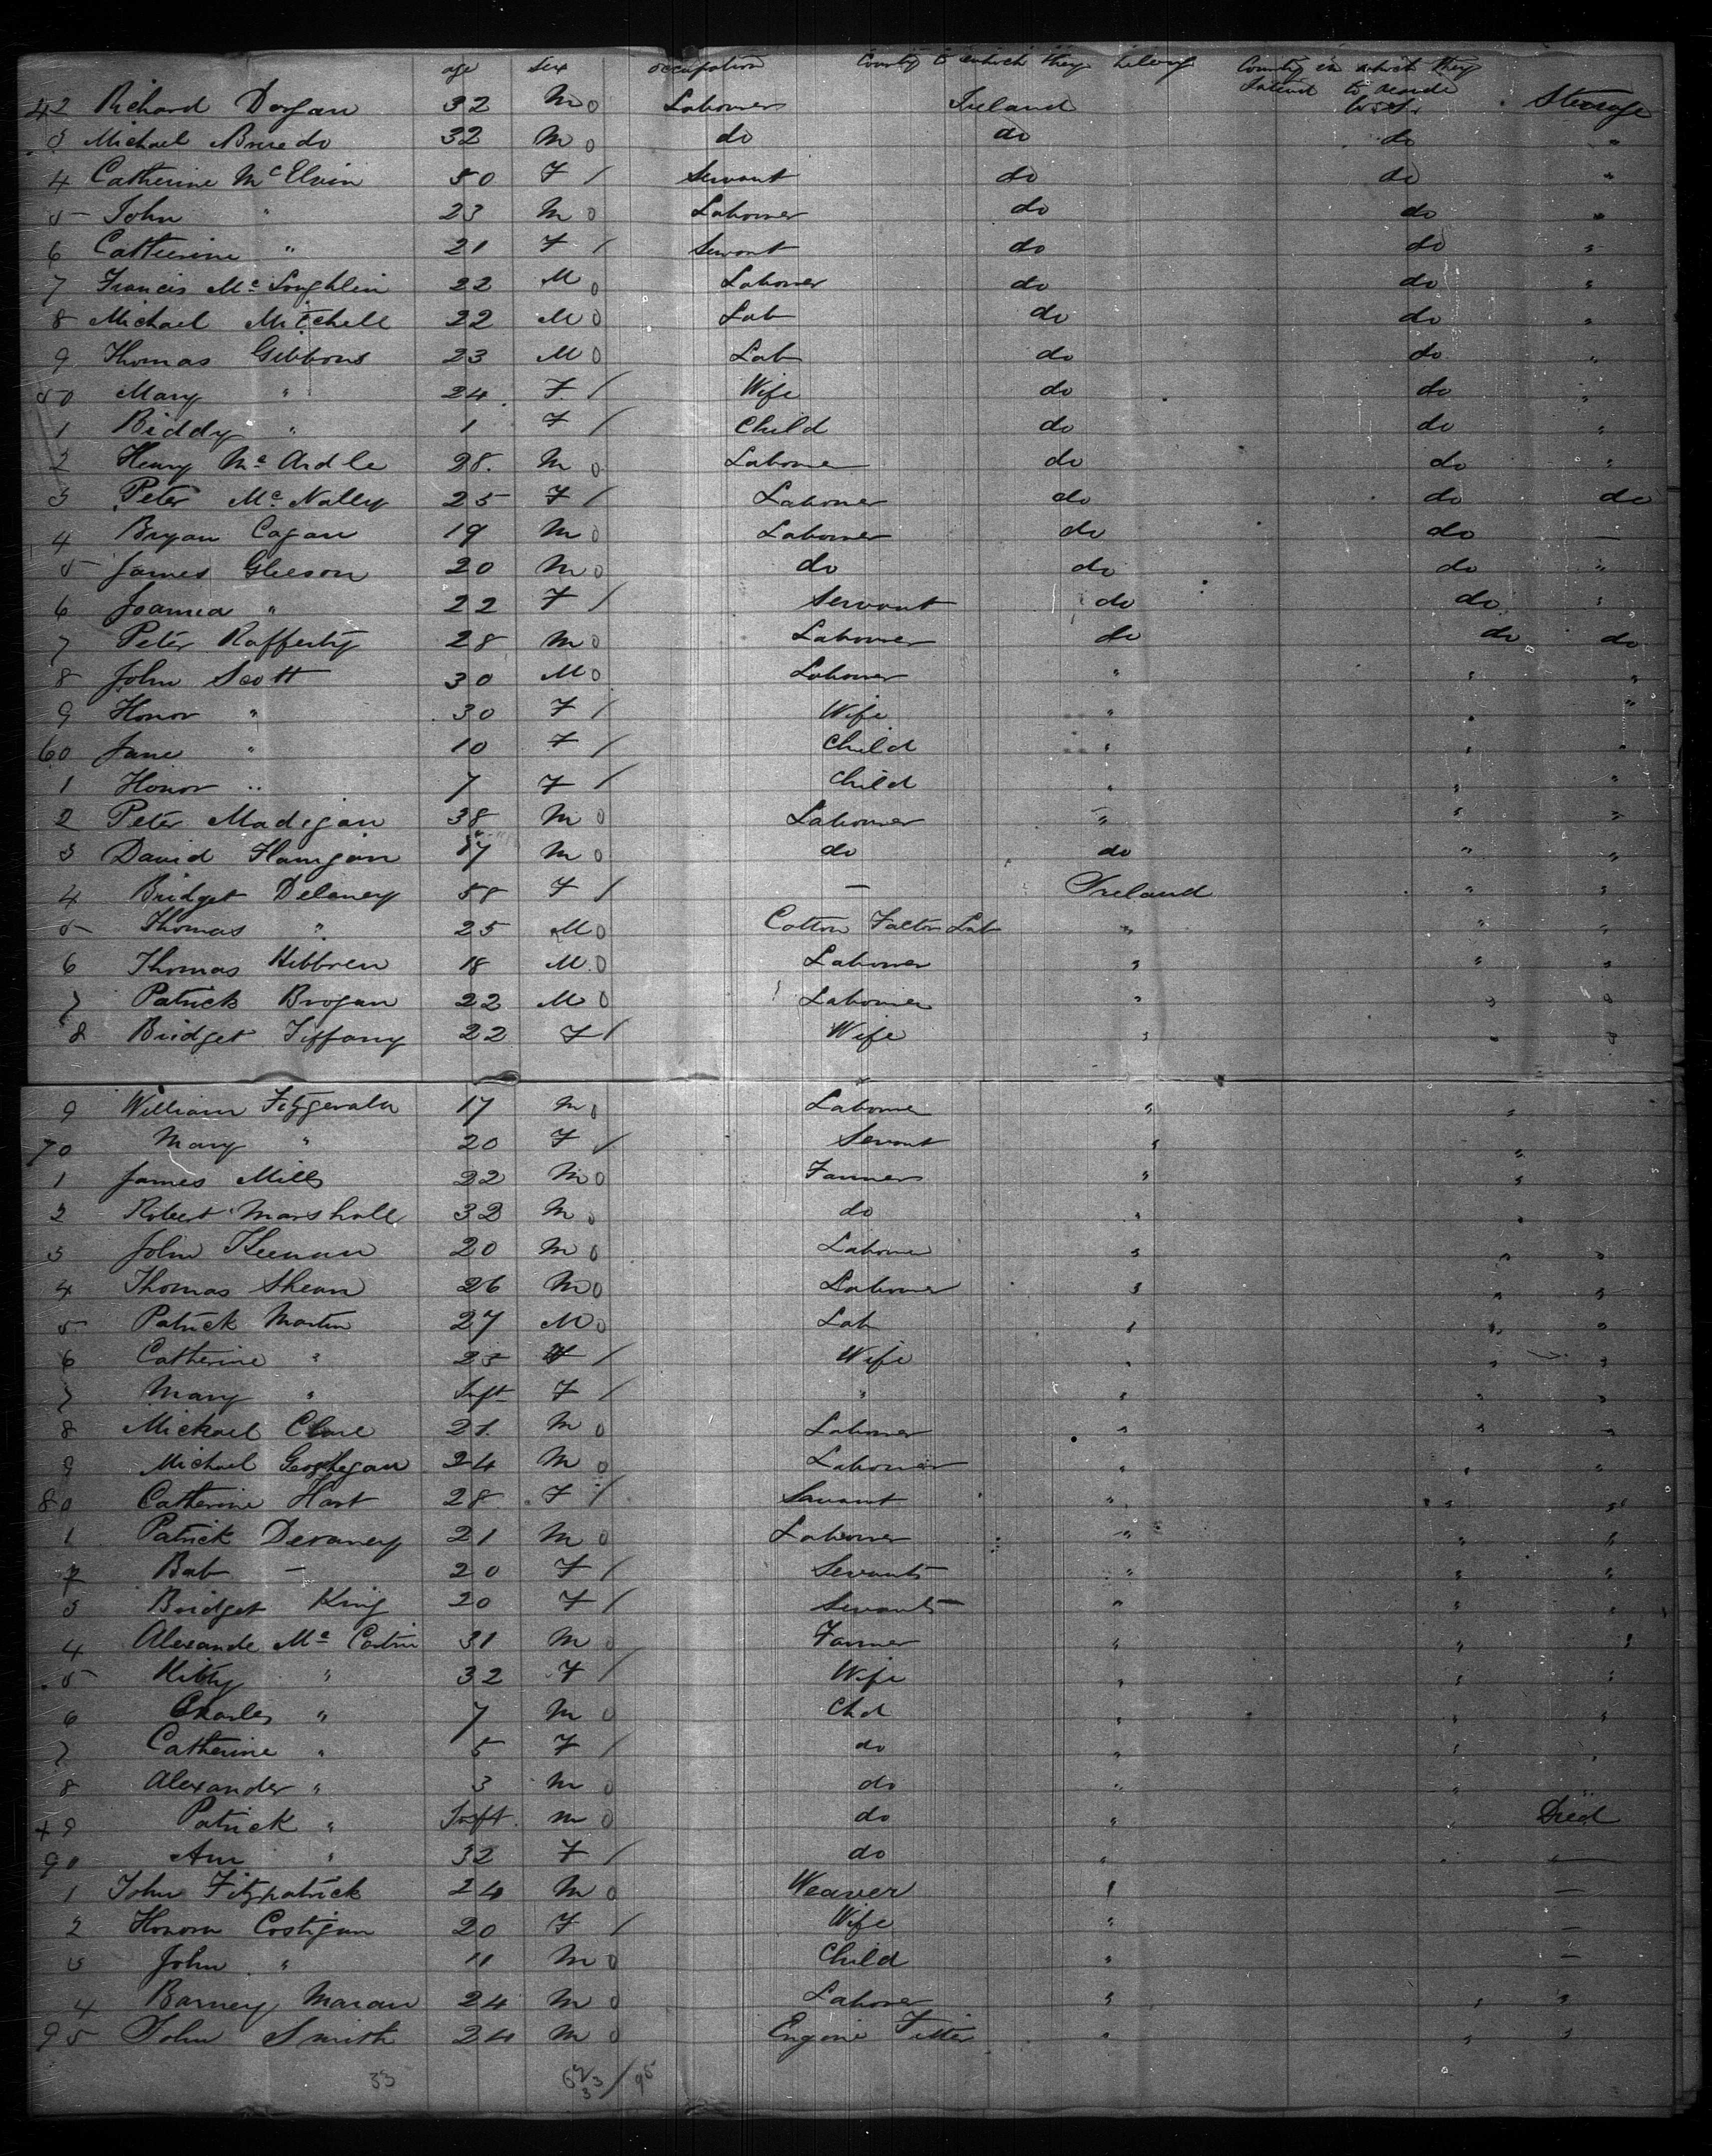 age sex occupation County to which they belong County in which they
intend to reside
42 Richard Dorgan 32 M 0 Labourer Ireland U.S. Steerage
3 Michael 32 M 0 do do do "
4 Catherine McElvin 50 F / Servant do do "
5 John " 23 M 0 Labourer do do "
6 Catherine " 21 F / Servant do do "
7 Francis McLoughlin 22 M 0 Labourer do do "
8 Michael Mitchell 22 M 0 Lab do do "
9 Thomas Gibbons 23 M 0 Lab do do "
50 Mary " 24 F / Wife do do "
1 Biddy " 1 F / Child do do "
2 Henry McArdle 28 M 0 Labourer do do "
3 Peter McNally 25 F / Labourer do do do
4 Bryan Cagan 19 M 0 Labourer do do —
5 James Gleeson 20 M 0 do do do "
6 Joanna " 22 F / Servant do do "
7 Peter Rafferty 28 M 0 Labourer do do do
8 John Scott 30 M 0 Labourer " " "
9 Honor " 30 F / Wife " " "
60 Jane " 10 F / Child " " "
1 Honor " 7 F / Child " " "
2 Peter Madigan 38 M 0 Labourer " " "
3 David Flanigan 17 M 0 do do " "
4 Bridget Delaney 58 F / — Ireland " "
5 Thomas " 25 M 0 Cotton Factor Lab " " "
6 Thomas Hibbren 18 M 0 Labourer " " "
7 Patrick Brogan 22 M 0 Labourer " " "
8 Bridget Tiffany 22 F / Wife " " "
9 William Fitzgerald 17 M 0 Labourer " "
70 Mary " 20 F / Servant " "
1 James Mills 22 M 0 Farmer " "
2 Robert Marshall 32 M 0 do " "
3 John Keenan 20 M 0 Labourer " " "
4 Thomas Shean 26 M 0 Labourer " " "
5 Patrick Martin 27 M 0 Lab " " "
6 Catherine " 25 F / Wife " " "
7 Mary " Inft F / " " " "
8 Michael Clare 21 M 0 Labourer " " "
9 Michael Geoghegan 24 M 0 Labourer " " "
80 Catherine Hart 28 F / Servant " " "
1 Patrick Devaney 21 M 0 Labourer " " "
2 Bab — 20 F / Servant " " "
3 Bridget King 20 F / Servant " " "
4 Alexande Mc 31 M 0 Farmer " " "
5 Kitty " 32 F / Wife " " "
6 Charles " 7 M 0 Chd " " "
7 Catherine " 5 F / do " " "
8 Alexander " 3 M 0 do " " "
+9 Patrick " Inft M 0 do " " Died
90 Ann " 32 F / do " " —
1 John Fitzpatrick 24 M 0 Weaver " —
2 Honora Costigan 20 F / Wife " —
3 John " 11 M 0 Child " —
4 Barney Maran 24 M 0 Labourer " " "
95 John Smith 24 M 0 Engine Fitter " " "
33 / 95